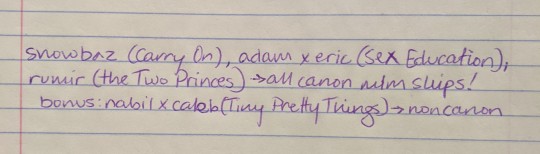 snowbaz (Carry On), adam x eric (Sex Education),
rumir (the Two Princes) → all canon mlm ships!
bonus: nabil x caleb (Tiny Pretty Things) → noncanon